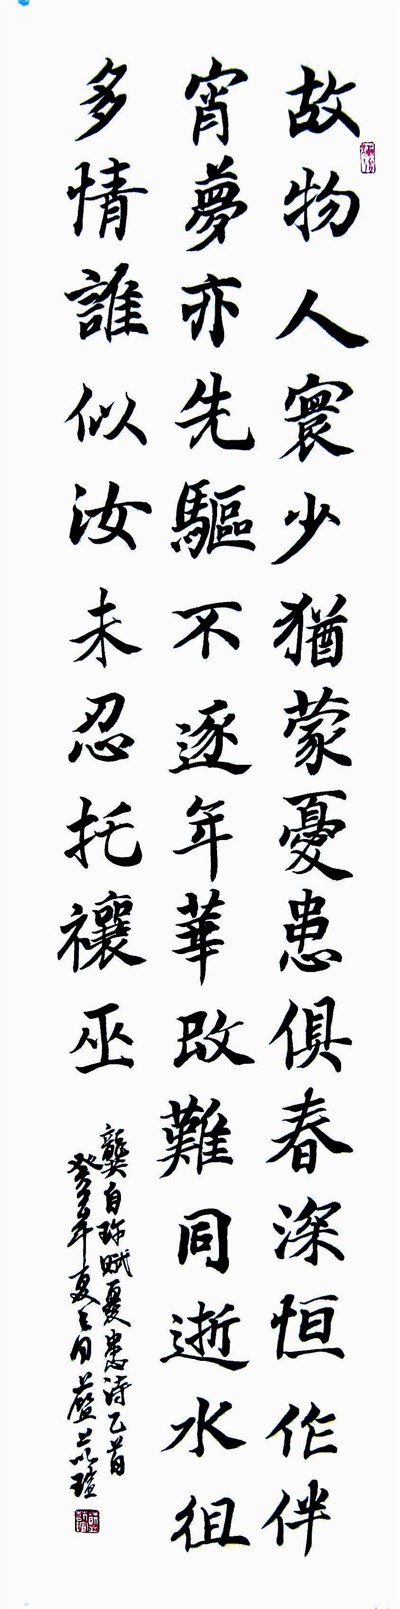 故物人寰少猶蒙憂患俱春深恒作伴
宵夢亦先驅不逐年華改難同逝水徂
多情誰似汝未忍托禳巫
龔自珍賦憂患詩乙首
癸年夏之月